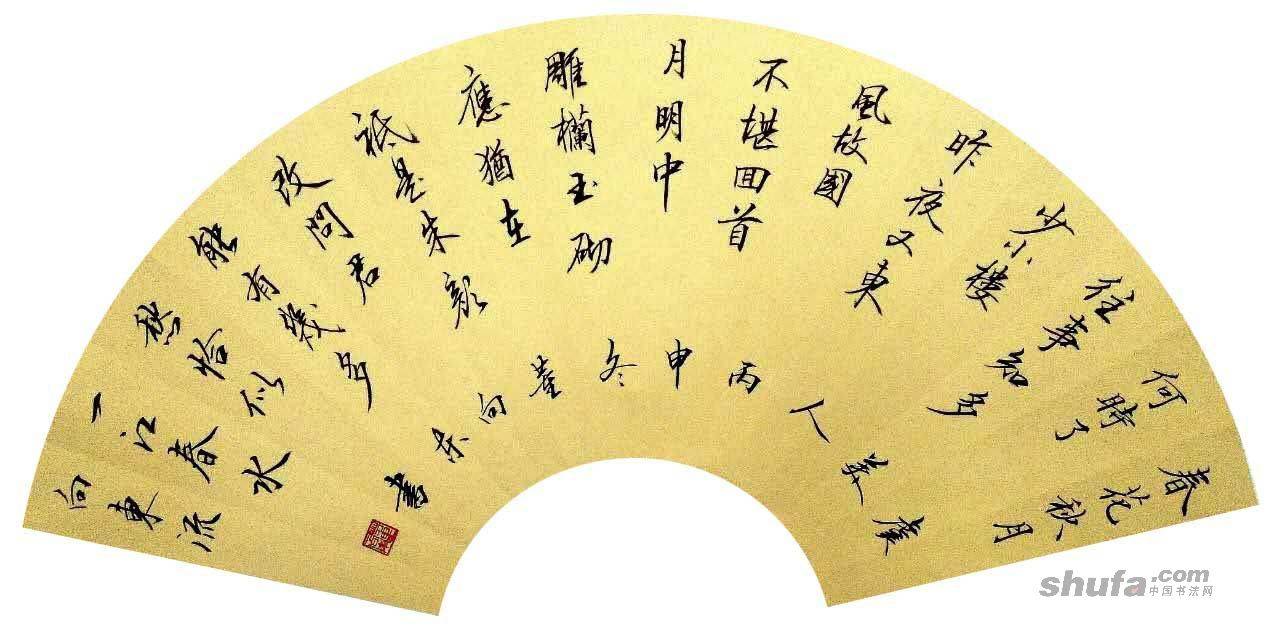 春花秋月
何時了
往事知多
少小樓
昨夜又東
風故國
不堪回首
月明中
雕欄玉砌
應猶在
祇是朱顏
改問君
能有幾多
愁恰似
一江春水
向東流
虞美人丙申冬董向东書
shufa.com
中国书法网